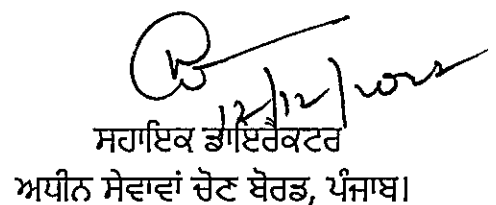 12/12/2022
ਸਹਾਇਕ ਡਾਇਰੈਕਟਰ
ਅਧੀਨ ਸੇਵਾਵਾਂ ਚੋਣ ਬੋਰਡ, ਪੰਜਾਬ।